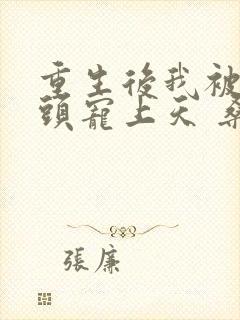 重生後我被
頭寵上天 桑
張廉